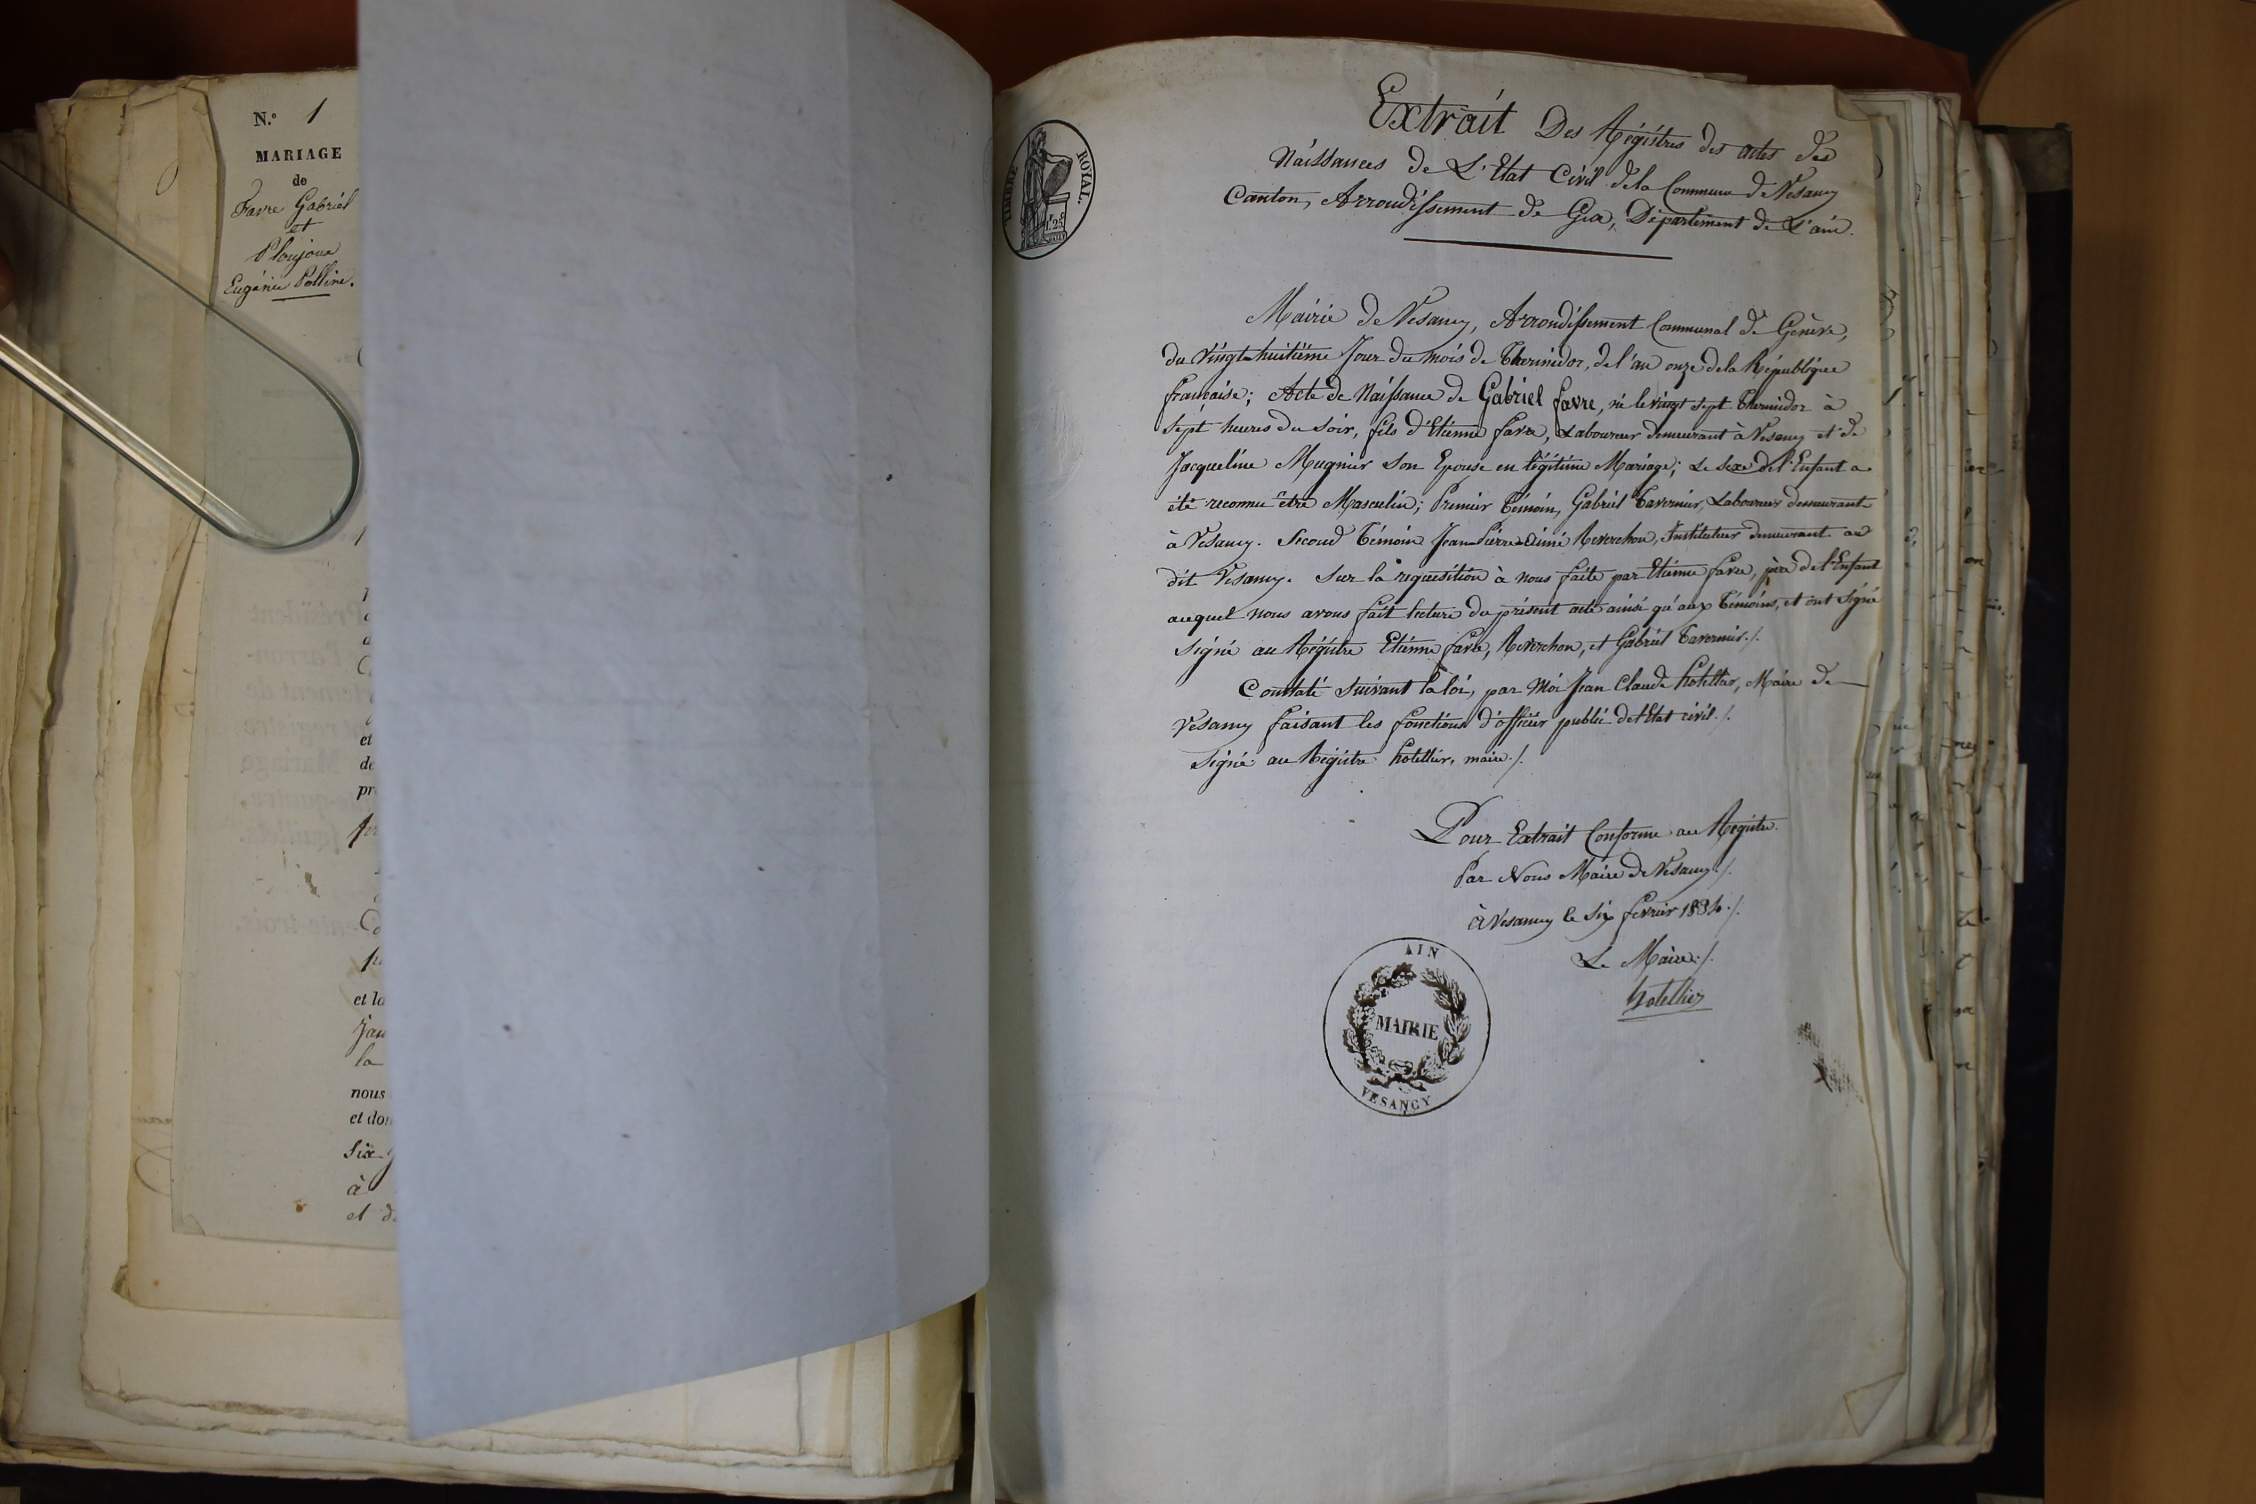 N.º 1
MARIAGE
de
Favre Gabriel
et
Ploujoux
Eugénie Polline.
et
de
pr
et la
la
nous
et don
Six
à
et de
TIMBRE ROYAL.
Extrait Des Régistres des actes des
Naissances de L'Etat Civil de la Commune de Vesancy
Canton, Arrondissement de Gex, Département de L'ain.
Mairie de Vesancy, Arrondissement Communal de Genève,
du Vingt-huitième Jour du mois de Thermidor, de l'an onze de la République
française; Acte de Naissance de Gabriel favre, né le vingt sept Thermidor à
Sept heures du Soir, fils d'Etienne favre, Laboureur demeurant à Vesancy et de
Jacqueline Mugnier Son Epouse en légitime Mariage; Le Sexe de l'Enfant a
été reconnu être Masculin; Premier Témoin, Gabriel Tavernier, Laboureur demeurant
à Vesancy. Second Témoin Jean-Pierre-Aimé Reverchon, Instituteur demeurant au
dit Vesancy. Sur la requisition à nous faite par Etienne favre, père de l'Enfant
auquel nous avons fait lecture du présent acte ainsi qu'aux Témoins, et ont Signé
Signé au Régistre Etienne favre, Reverchon, et Gabriel Tavernier./.
Constaté Suivant la loi, par Moi Jean Claude hotellier, Maire de
Vesancy faisant les fonctions d'officier public de l'Etat civil./.
Signé au Régistre hotellier, maire./.
Pour Extrait Conforme au Régistre.
Par Nous Maire de Vesancy./.
à Vesancy le Six fevrier 1834./.
Le Maire./.
hotellier
AIN
MAIRIE
VESANCY